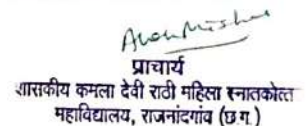 प्राचार्य
शासकीय कमला देवी राठी महिला स्नातकोत्त
महाविद्यालय, राजनांदगांव (छ.ग.)